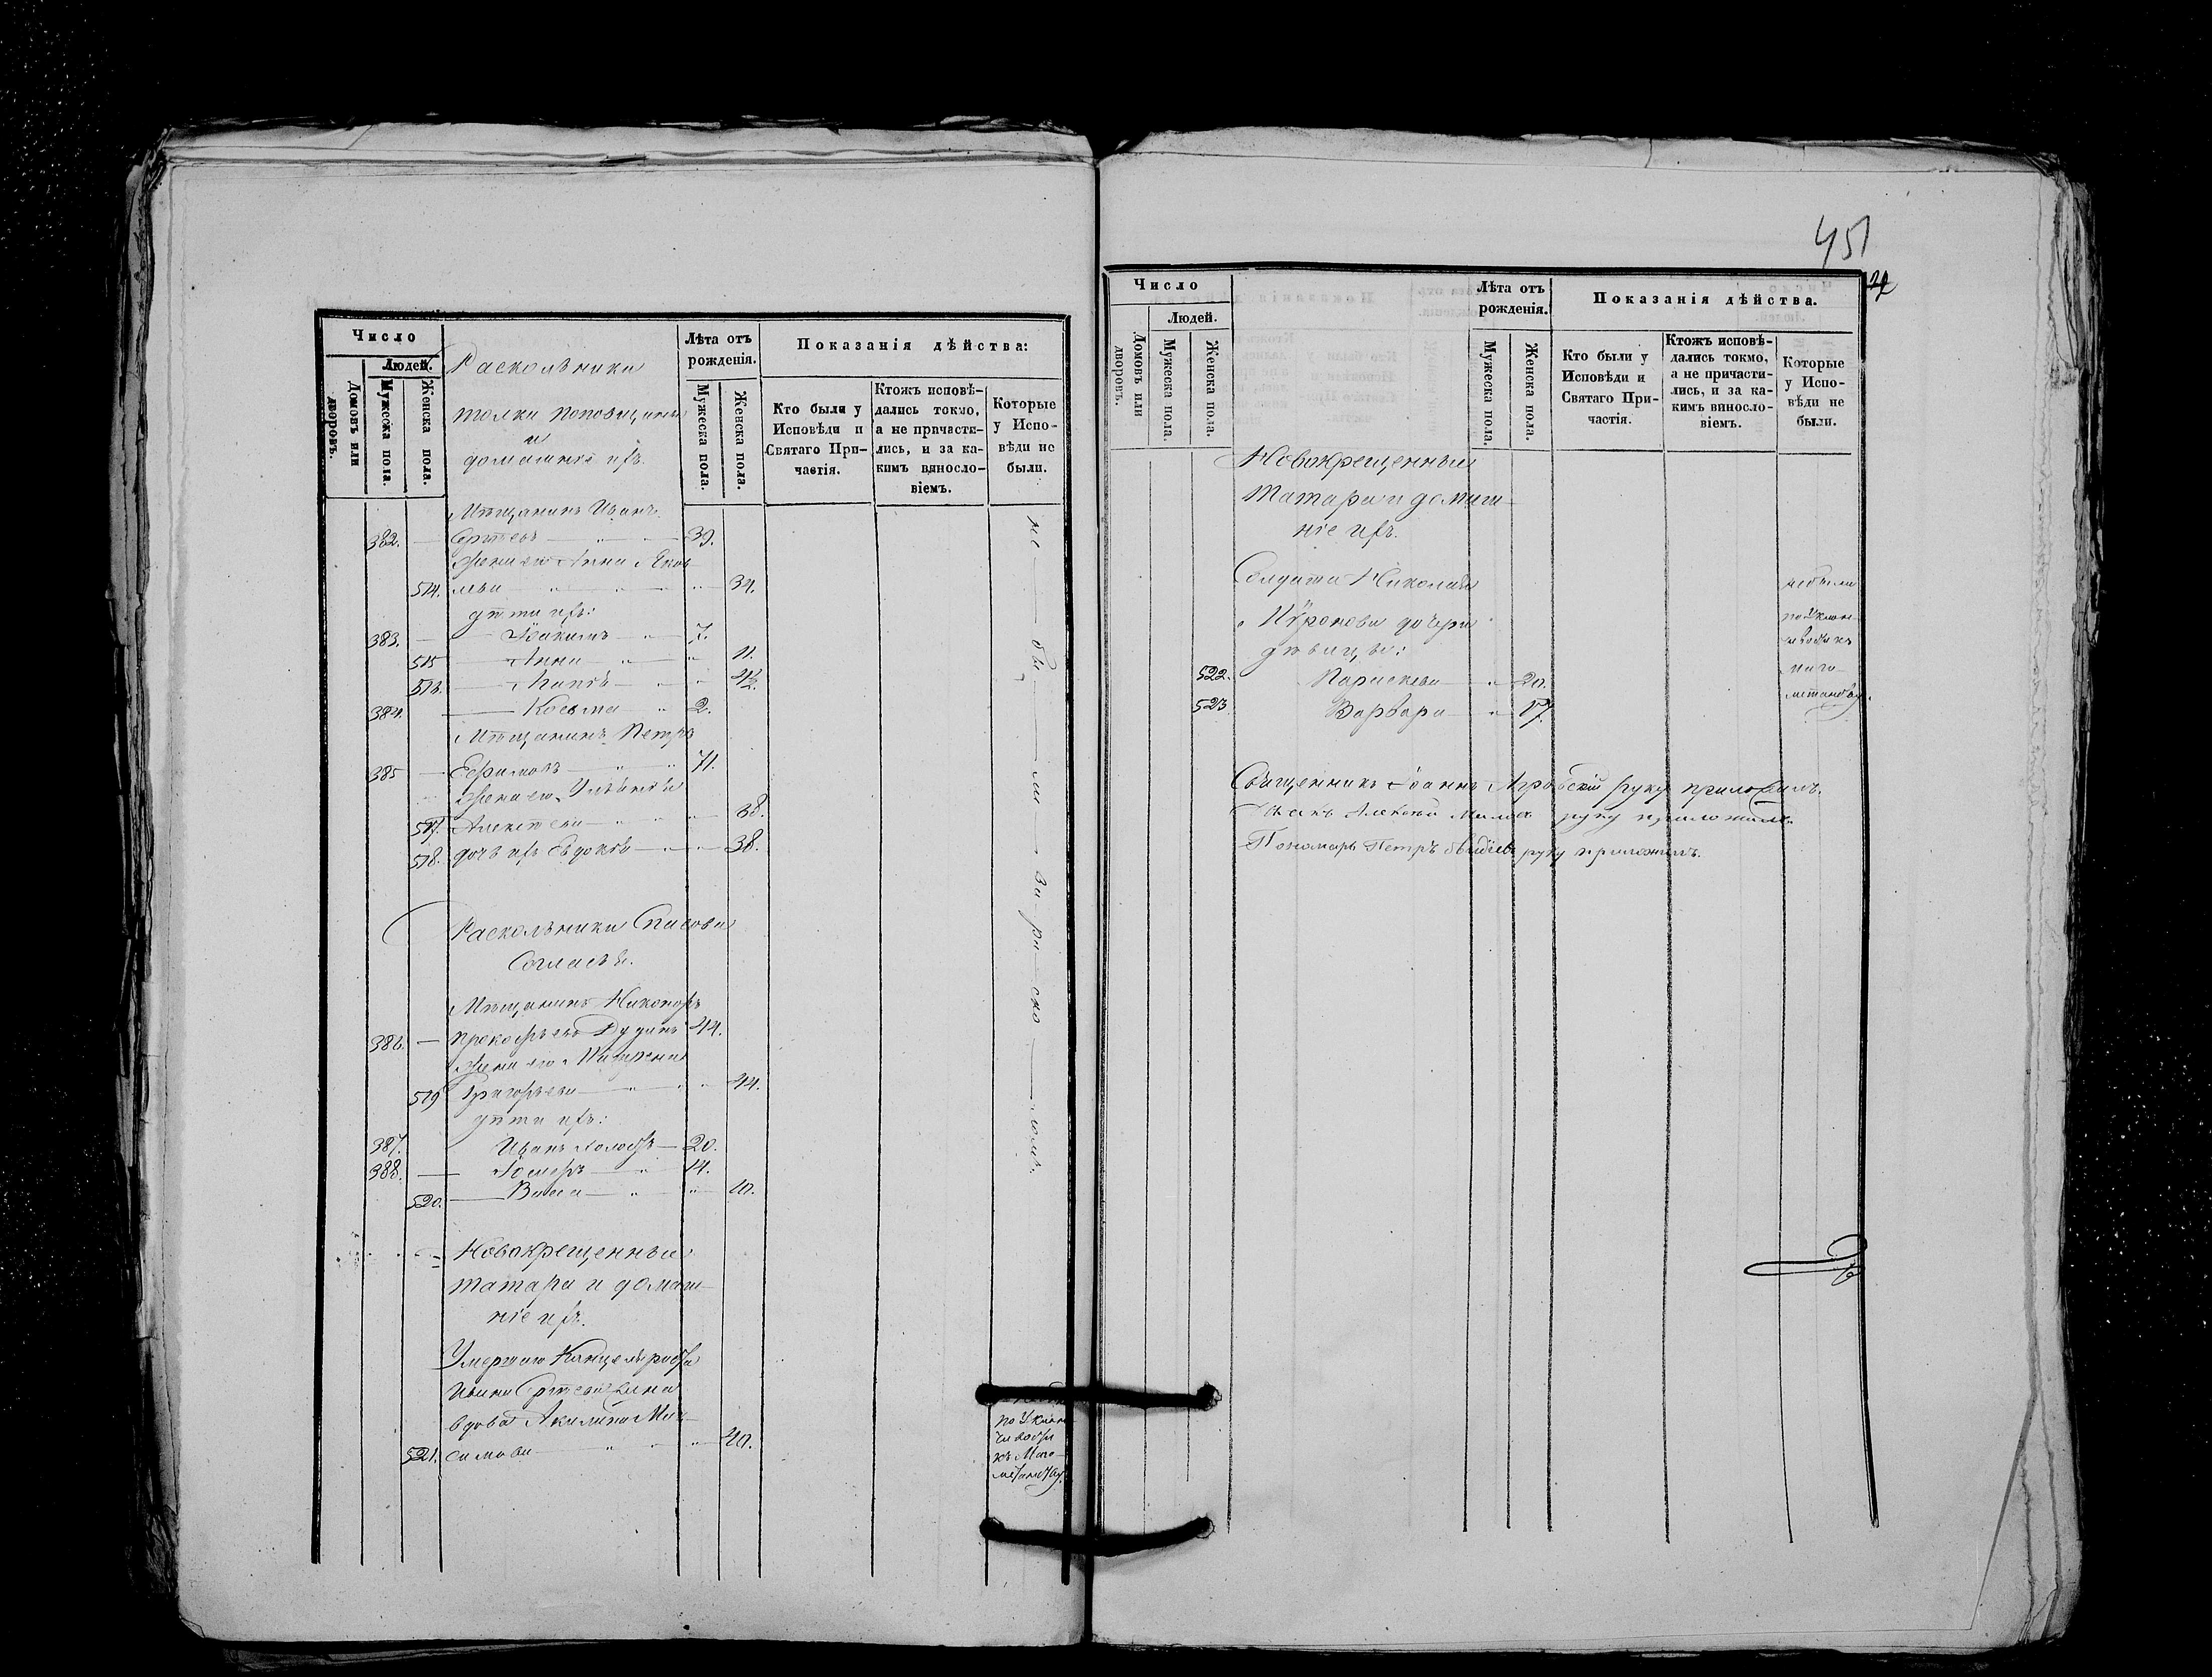 Число
Людей.
Домовъ или дворовъ.
Мужеска пола.
Женска пола.
Лѣта отъ рожденія.
Мужеска пола.
Женска пола.
Показанія дѣйства:
Кто были у Исповѣди и Святаго Причастія.
Ктожъ исповѣдались токмо, а не причастились, и за какимъ винословіемъ.
Которые у Исповѣди не были.
Раскольники
толка поповщины
и
домашніе ихъ.
Мѣщанинъ Иванъ
382. Сергѣевъ 39.
жена его Анна Яков
514. лева 34.
дѣти ихъ:
383. Іоакимъ 7.
515 Анна 11.
516.
384. Косьма 2.
Мѣщанинъ Петръ
385 Ефимовъ 71.
жена его Ульянія
517. Алексѣева
518. дочь ихъ Евдокія 38.
не были за расколомъ.
Раскольники Спасова
Согласія.
Мѣщанинъ Никаноръ
386. Прокофьевъ 44.
жена его
519 Григорьева 44.
дѣти ихъ:
387. Иванъ холостъ 20.
388. 14.
520. Васса 10.
Новокрещенныя
татара и домаш
ніе ихъ.
Умершаго
Ивана
вдова Акилина Мак
521. симова 40.
по Уклон
чивости
къ Маго
метанству.
451
Число
Людей.
Домовъ или дворовъ.
Мужеска пола.
Женска пола.
Лѣта отъ рожденія.
Мужеска пола.
Женска пола.
Показанія дѣйства.
Кто были у Исповѣди и Святаго Причастія.
Ктожъ исповѣдались токмо, а не причастились, и за какимъ винословіемъ.
Которые у Исповѣди не были.
Новокрещенныя
татара и домаш
ніе ихъ.
Солдата Николая
дочери
дѣвицы:
522. Параскева 20.
523 Варвара 17.
небыли
по Уклон
чивости къ
маго
метанству.
Священникъ Іоаннъ руку приложилъ.
Дьякъ Алексѣй руку приложилъ.
Пономарь Петръ руку приложилъ.